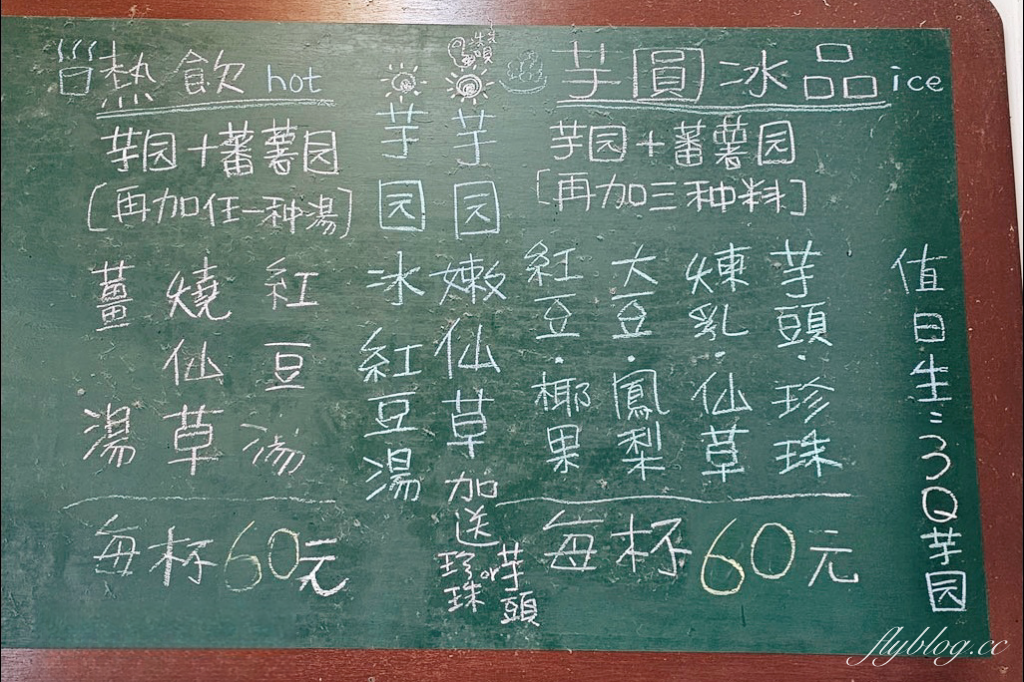 熱飲 hot
芋园+蕃薯园
[再加任一种湯]
薑湯
燒仙草
紅豆湯
每杯60元
芋园冰紅豆湯
芋园嫩仙草加送珍珠or芋頭
芋圓冰品 ice
芋园+蕃薯园
[再加三种料]
紅豆·椰果
大豆·鳳梨
煉乳·仙草
芋頭·珍珠
每杯60元
值日生:3Q芋园
flyblog.cc